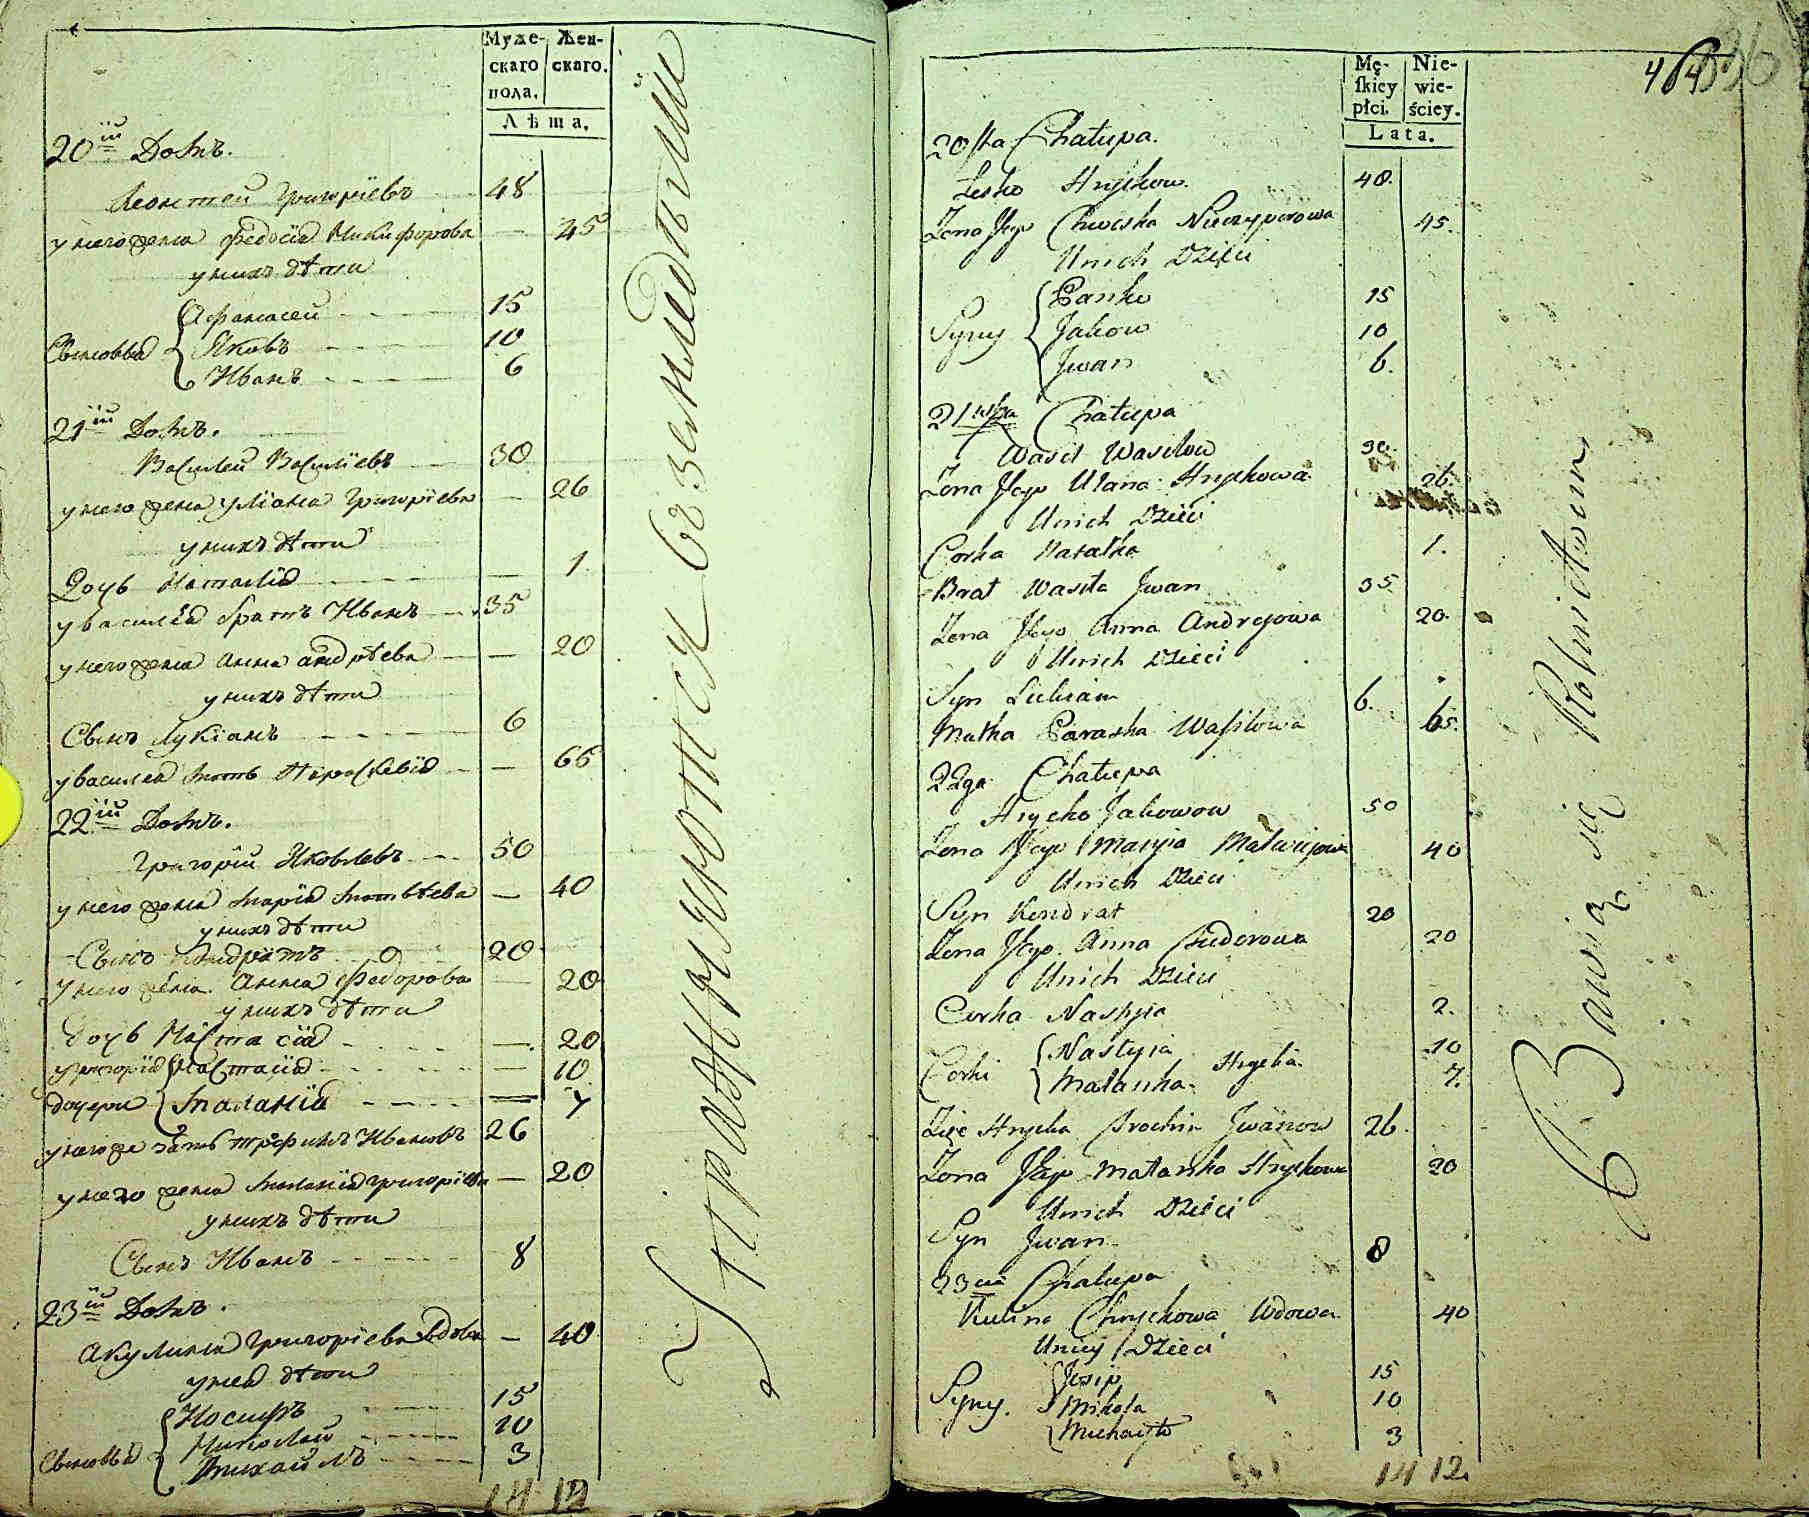 Муже-
скаго
пола.
Жен-
скаго.
Лѣта.
20ій Домъ.
Леонтей Григоріевъ 48
у него жена Федосія Никифорова — 45
у нихъ дѣти
Афанасей 15
Сыновья Яковъ 10
Иванъ 6
21ій Домъ.
Василей Василіевъ 30
у него жена Уліана Григоріева — 26
у нихъ дѣти
Дочь Наталія — 1
у василея братъ Иванъ 35
у него жена Анна андрѣева — 20
у нихъ дѣти
Сынъ Лукіанъ 6
у василея мать Параскевія — 65
22ій Домъ.
Григорій Яковлевъ 50
у него жена Марія Матвѣева — 40
у нихъ дѣти
Сынъ Кондратъ 20
у него жена Анна Федорова — 20
у нихъ дѣти
дочь Настасія — 20
у григорія Настасія — 10
дочери Маланія — 7
у него же зять трофимъ Ивановъ 26
у него жена Маланія григоріева — 20
у нихъ дѣти
Сынъ Иванъ 8
23ій Домъ.
Акулина Григоріева Вдова — 40
у нея дѣти
Иосифъ 15
Николай 10
Сыновья Михайлъ 3
14 12
Упражняются въ земледѣліи
464
Mę-
skiey
płci.
Nie-
wie-
ściey.
Lata.
20sta Chałupa.
Lesko Hryckow. 48.
Zona Jego Chweska Niczyporowa 45.
Unich Dzieci
Panko 15
Syny Jakow 10
Jwan 6.
21wsza Chałupa
Wasil Wasilow 30.
Zona Jego Ulana Hryckowa 26.
Unich Dzieci
Corka Natałka 1.
Brat Wasila Jwan 35
Zona Jego Anna Andrejowa 20.
Unich Dzieci
Syn Lukian 6.
Matka Paraska Wasilowa 65.
22ga Chałupa
Hrycko Jakowow 50
Zona Jego Maryia Matwiejowa 40
Unich Dzieci
Syn Kondrat 20
Zona Jego Anna Chwedorowa 20
Unich Dzieci
Corka Nastyia 2.
Nastyia 10
Corki Małanka Hrycka 7.
Zięć Hrycka Trochim Jwanow 26.
Zona Jego Małanka Hryckowa 20
Unich Dzieci
Syn Jwan 8
23cia Chałupa
Kulina Chryckowa Wdowa 40
Uniey Dzieci
Josip 15
Syny. Mikoła 10
Michayło 3
14 12.
Bawią się Rolnictwem